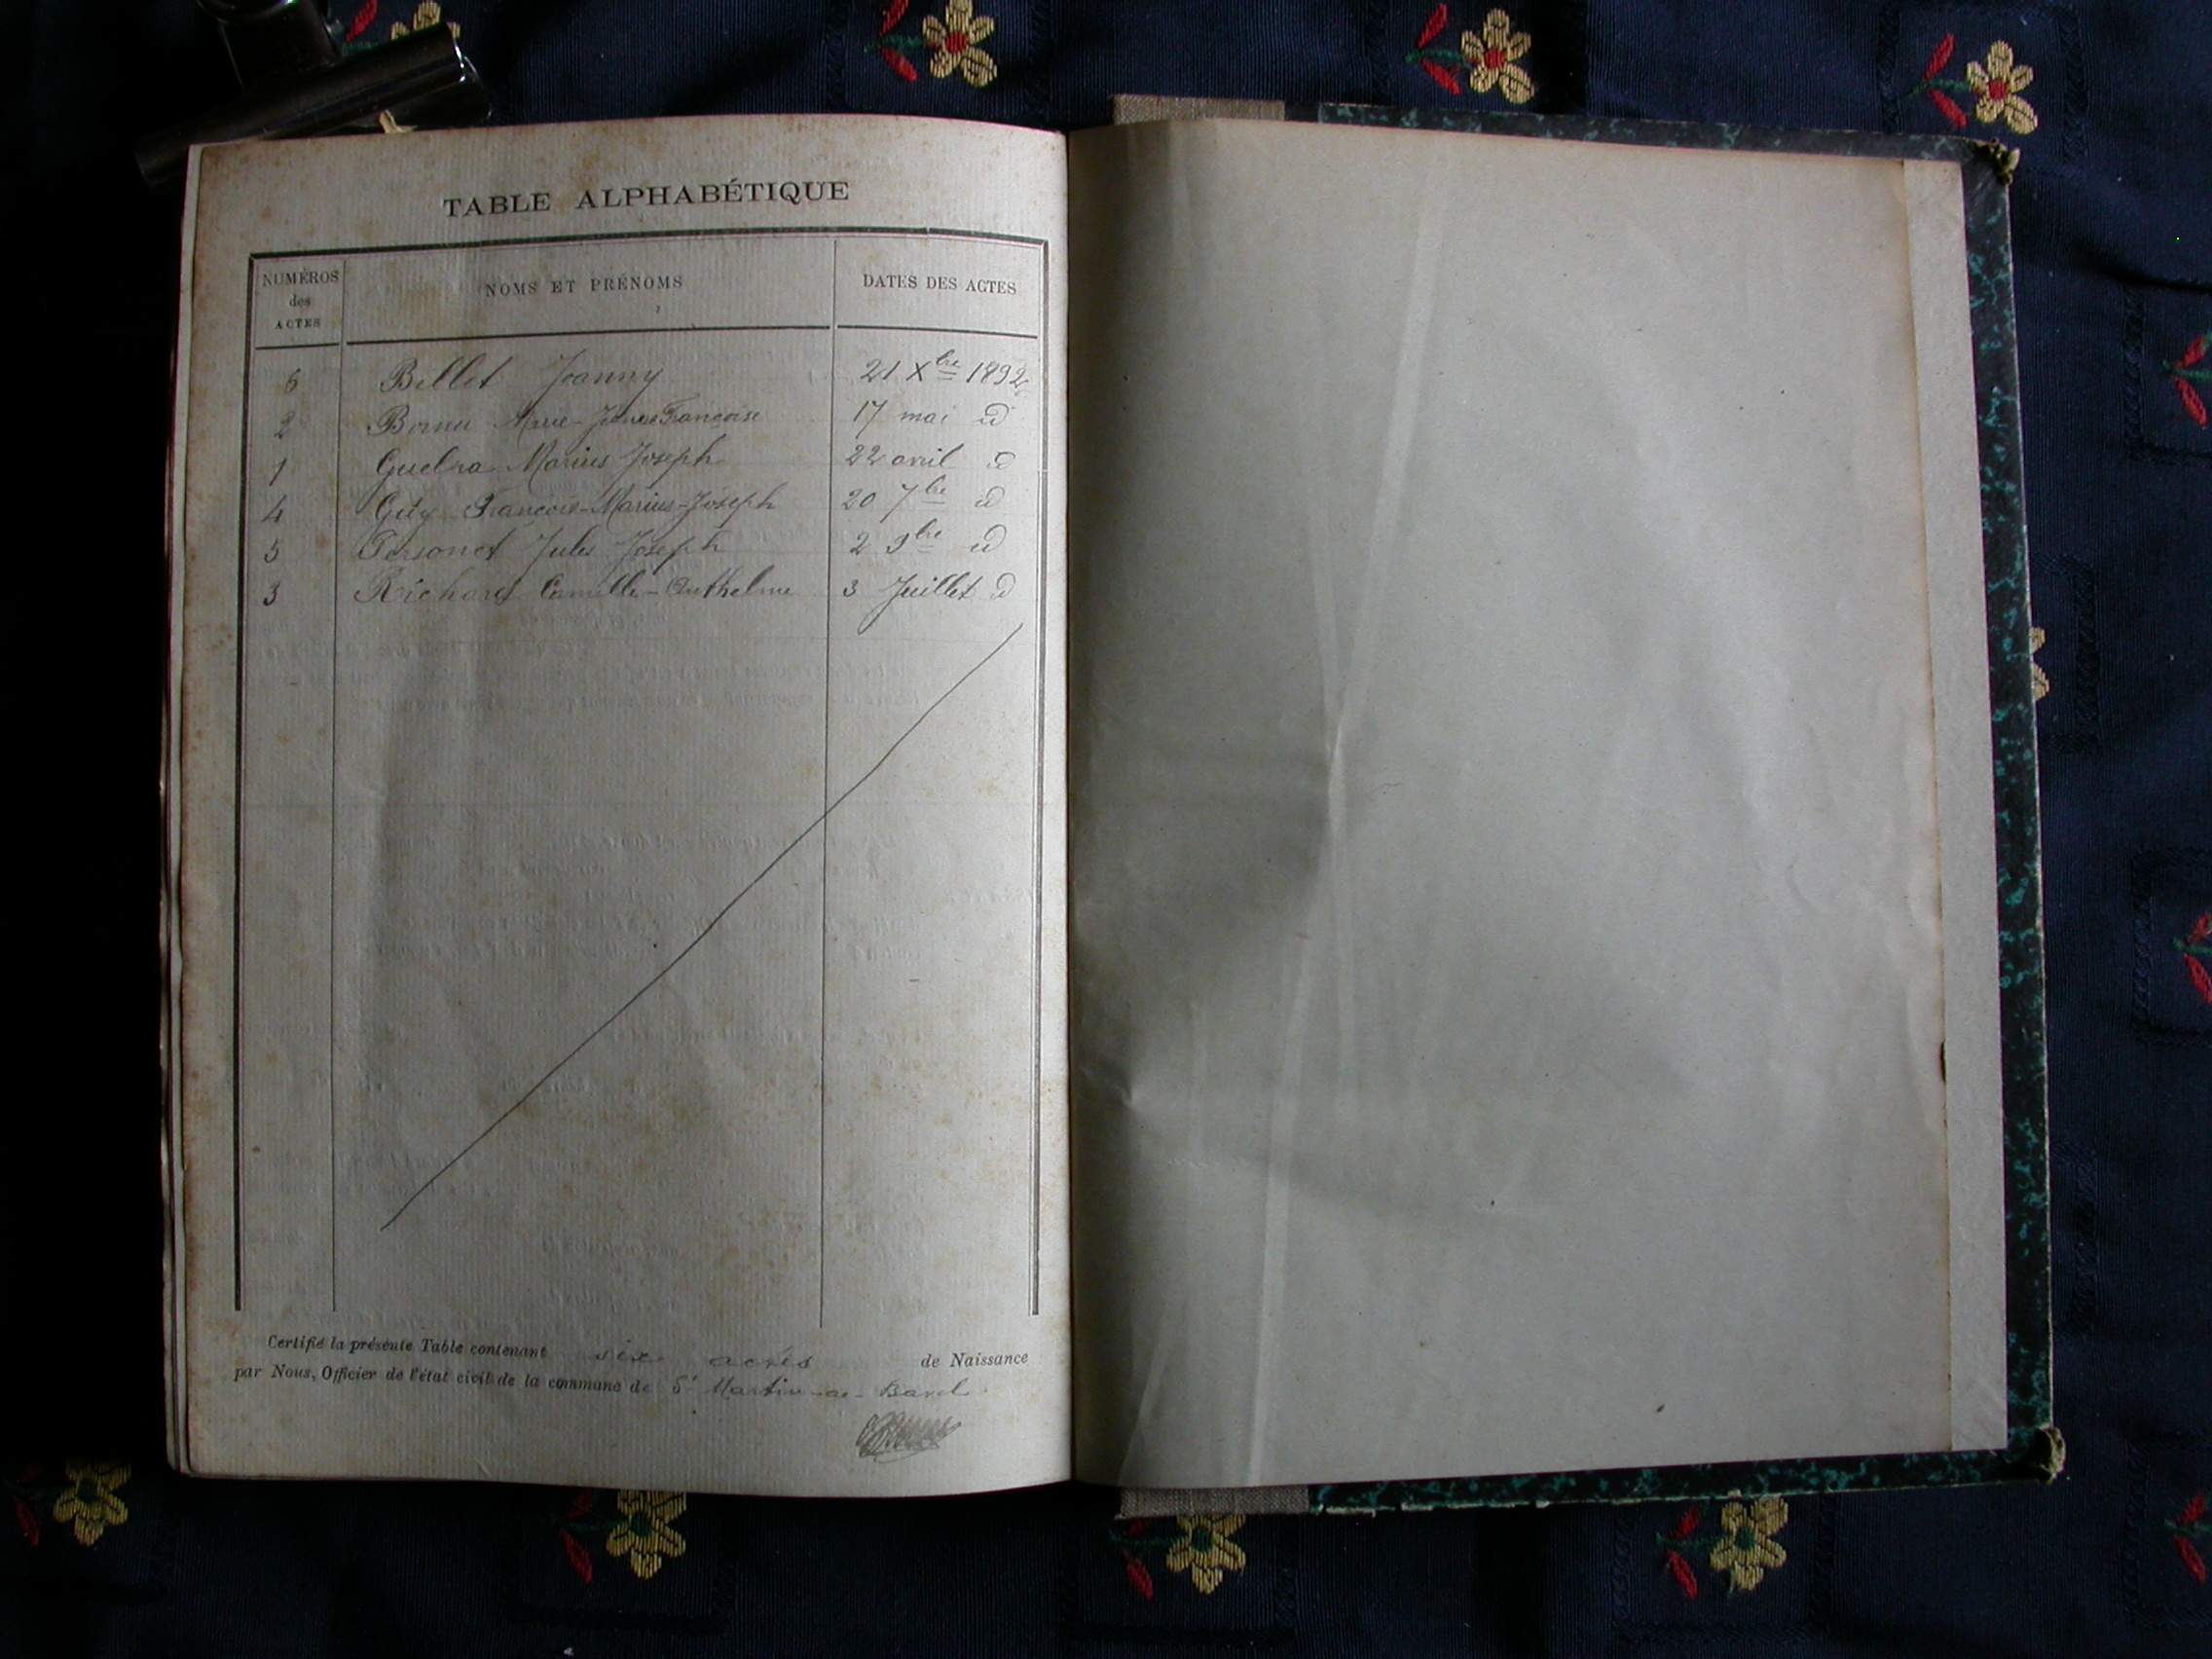 TABLE ALPHABÉTIQUE
NUMÉROS
des
ACTES
NOMS ET PRÉNOMS
DATES DES ACTES
6 Bellet Joanny 21 Xbre 1892
2 Marie-Jeanne Françoise 17 mai id
1 Guelra Marius Joseph 22 avril id
4 Guy François-Marius-Joseph 20 7bre id
5 Personet Jules Joseph 2 9bre id
3 Richard Camille-Anthelme 3 Juillet id
Certifié la présente Table contenant six actes de Naissance
par Nous, Officier de l'état civil de la commune de St Martin-de-Bavel